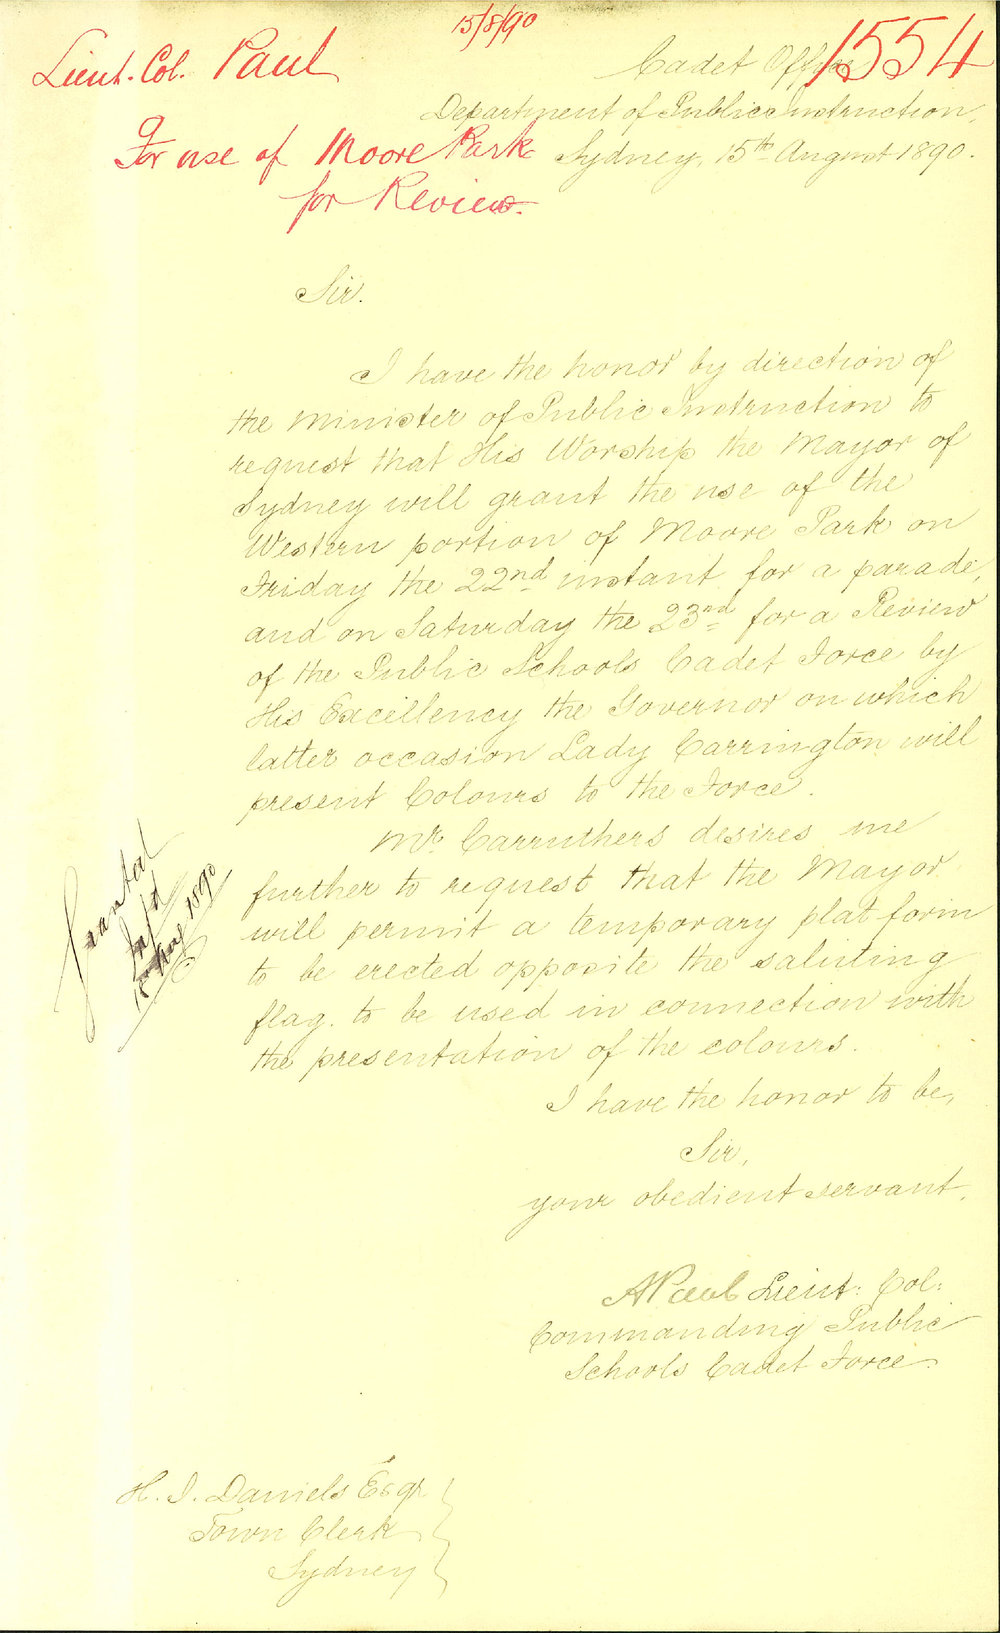 15/8/90
1554
Lieut. Col. Paul
For use of Moore Park
for Review.
Cadet Office
Department of Public Instruction,
Sydney, 15th August 1890.
Sir.
I have the honor by direction of
the Minister of Public Instruction to
request that His Worship the Mayor of
Sydney will grant the use of the
Western portion of Moore Park on
Friday the 22nd instant for a parade,
and on Saturday the 23rd for a Review
of the Public Schools Cadet Force by
His Excellency the Governor on which
latter occasion Lady Carrington will
present Colours to the Force.
Mr. Carruthers desires me
further to request that the Mayor
will permit a temporary platform
to be erected opposite the saluting
flag. to be used in connection with
the presentation of the colours.
Granted
Aug 1890
I have the honor to be,
Sir,
your obedient servant,
A Paul Lieut: Col:
Commanding Public
Schools Cadet Force.
H. J. Daniels Esqr
Town Clerk
Sydney